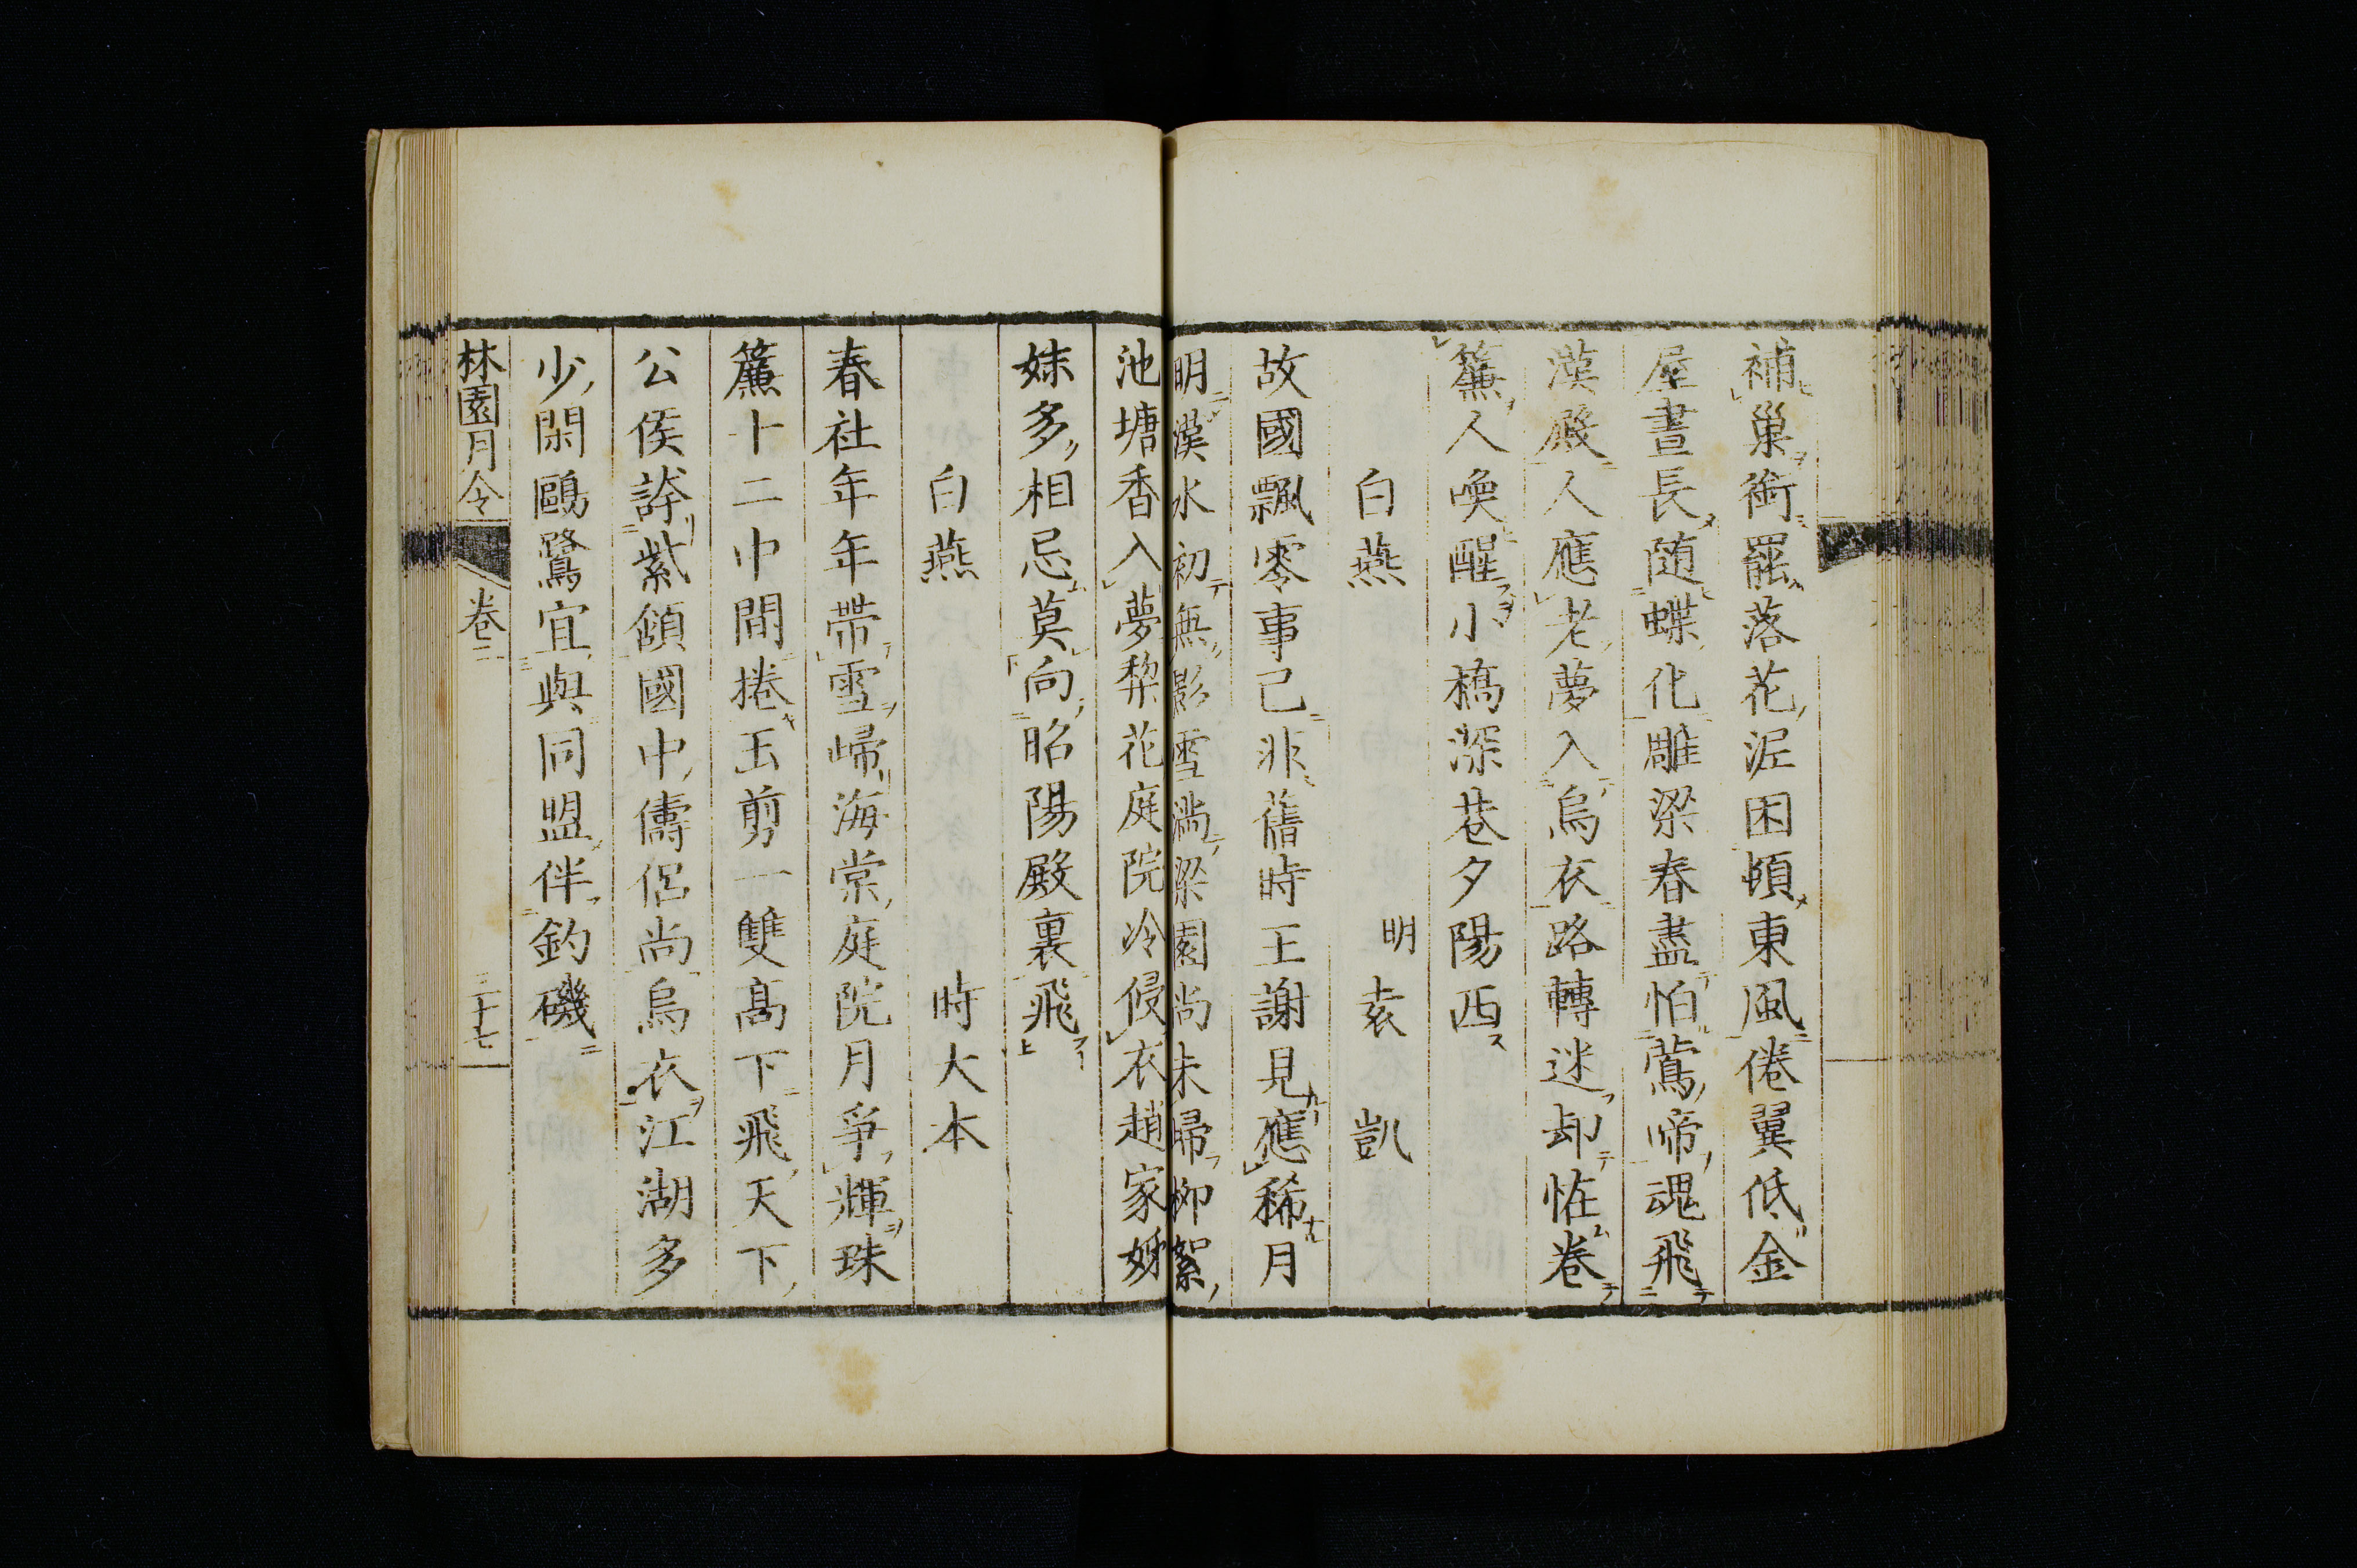 補巢銜罷落花泥困頓東風倦翼低金
屋晝長随蝶化雕梁春盡怕鶯啼魂飛
漢殿人應老夢入烏衣路轉迷却恠卷
簾人喚醒小橋深巷夕陽西
白燕　　明　袁凱
故國飄零事已非舊時王謝見應稀月
明漢水初無影雪滿梁園尚未歸柳絮
池塘香入夢梨花庭院冷侵衣趙家姊
妹多相忌莫向昭陽殿裏飛
白燕　　時大本
春社年年帶雪歸海棠庭院月爭輝珠
簾十二中間捲玉剪一雙高下飛天下
公侯誇紫頷國中儔侶尚烏衣江湖多
少閑鷗鷺宜與同盟伴釣磯
林園月令　卷二　二十七